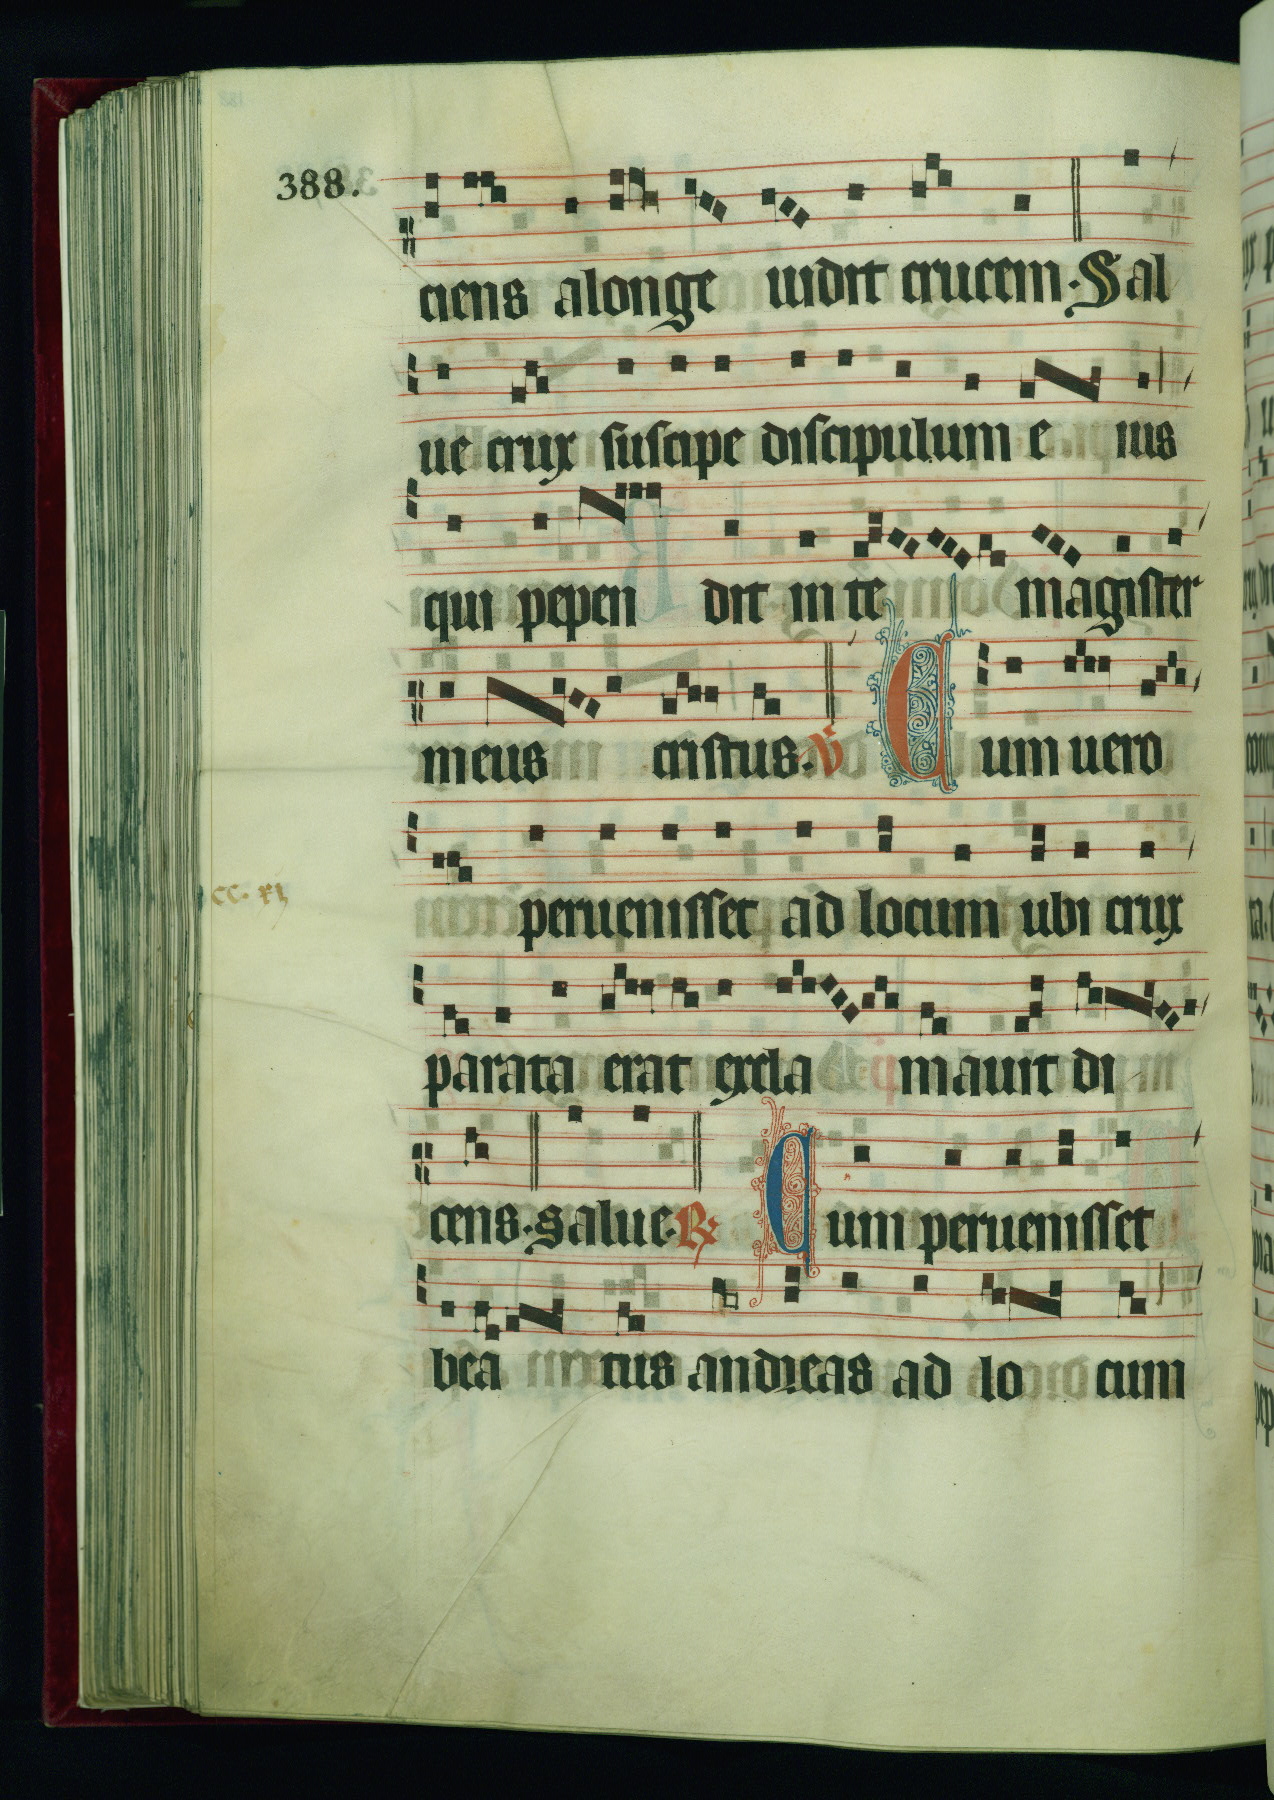 388.
ciens alonge uidit crucem. Sal
ue crux suscipe discipulum e ius
qui pepen dit in te magister
meus cristus. V Cum uero
peruenisset ad locum ubi crux
cc. xi
parata erat excla mauit di
cens. Salue. R Cum peruenisset
bea tus andreas ad lo cum